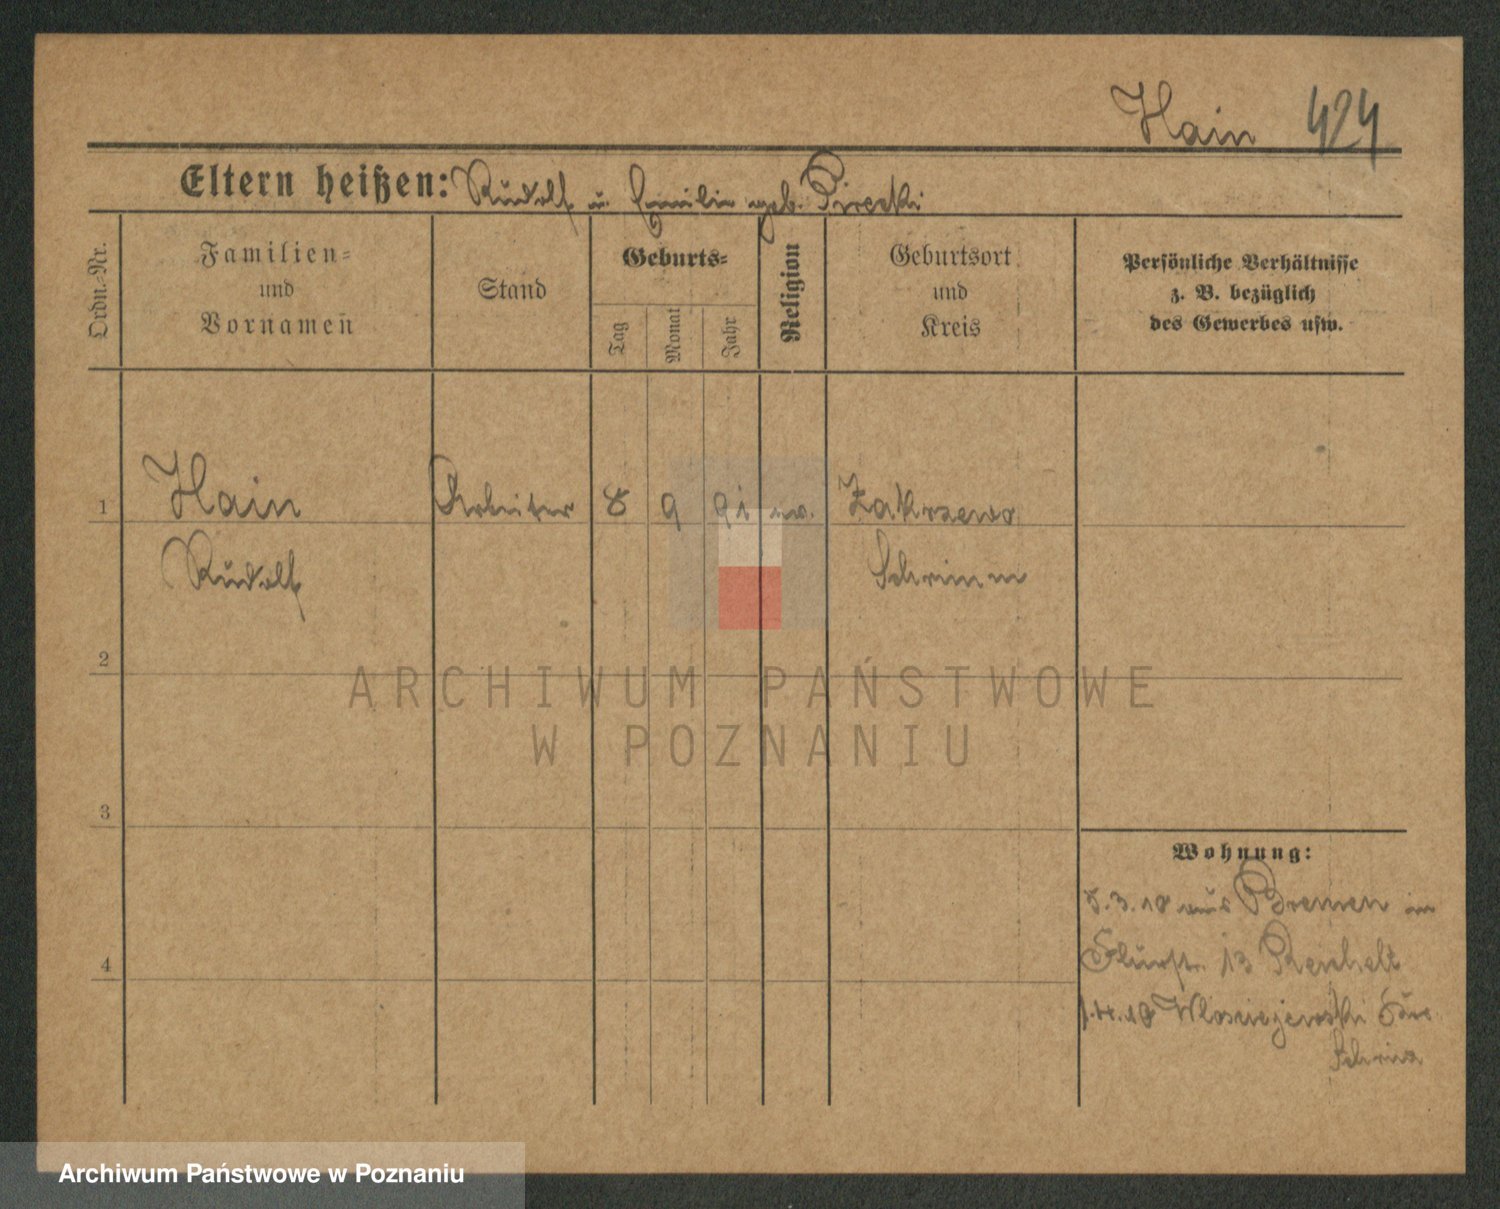 Hain 424
Eltern heißen: Rudolf u. Emilie geb.
Ordn.-Nr.
Familien-
und
Vornamen
Stand
Geburts-
Tag
Monat
Jahr
Religion
Geburtsort
und
Kreis
Persönliche Verhältnisse
z. B. bezüglich
des Gewerbes usw.
1 Hain Arbeiter 8 9 91 ev. Zakrzewo
Rudolf Schrimm
2
ARCHIWUM PAŃSTWOWE
W POZNANIU
3
Wohnung:
5.3.18 aus Bremen in
4 Flurstr. 13 Reichelt
1.4.18 Wlosciejewski
Schrim
Archiwum Państwowe w Poznaniu